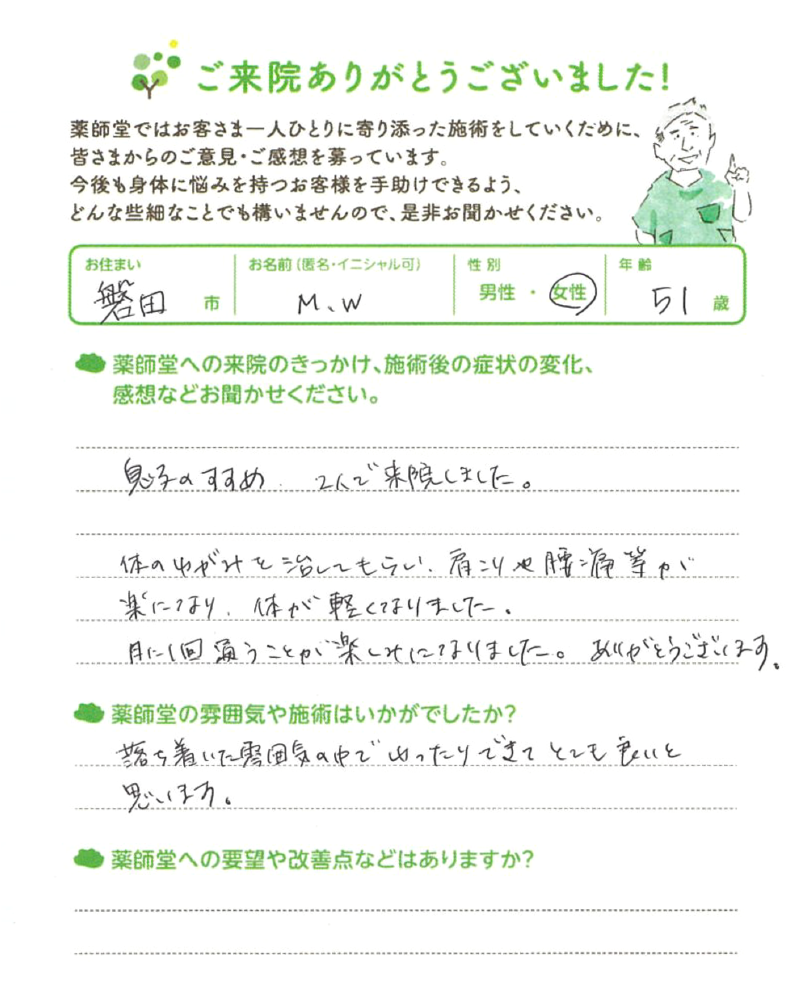 ご来院ありがとうございました!
薬師堂ではお客さま一人ひとりに寄り添った施術をしていくために、
皆さまからのご意見・ご感想を募っています。
今後も身体に悩みを持つお客様を手助けできるよう、
どんな些細なことでも構いませんので、是非お聞かせください。
お住まい お名前(匿名・イニシャル可) 性別 年齢
磐田 市 M、W 男性 ・ 女性 51 歳
薬師堂への来院のきっかけ、施術後の症状の変化、
感想などお聞かせください。
息子のすすめ 2人で来院しました。
体のゆがみを治してもらい、肩こりや腰痛等が
楽になり、体が軽くなりました。
月に1回通うことが楽しみになりました。ありがとうございます。
薬師堂の雰囲気や施術はいかがでしたか?
落ち着いた雰囲気の中でゆったりできてとても良いと
思います。
薬師堂への要望や改善点などはありますか?